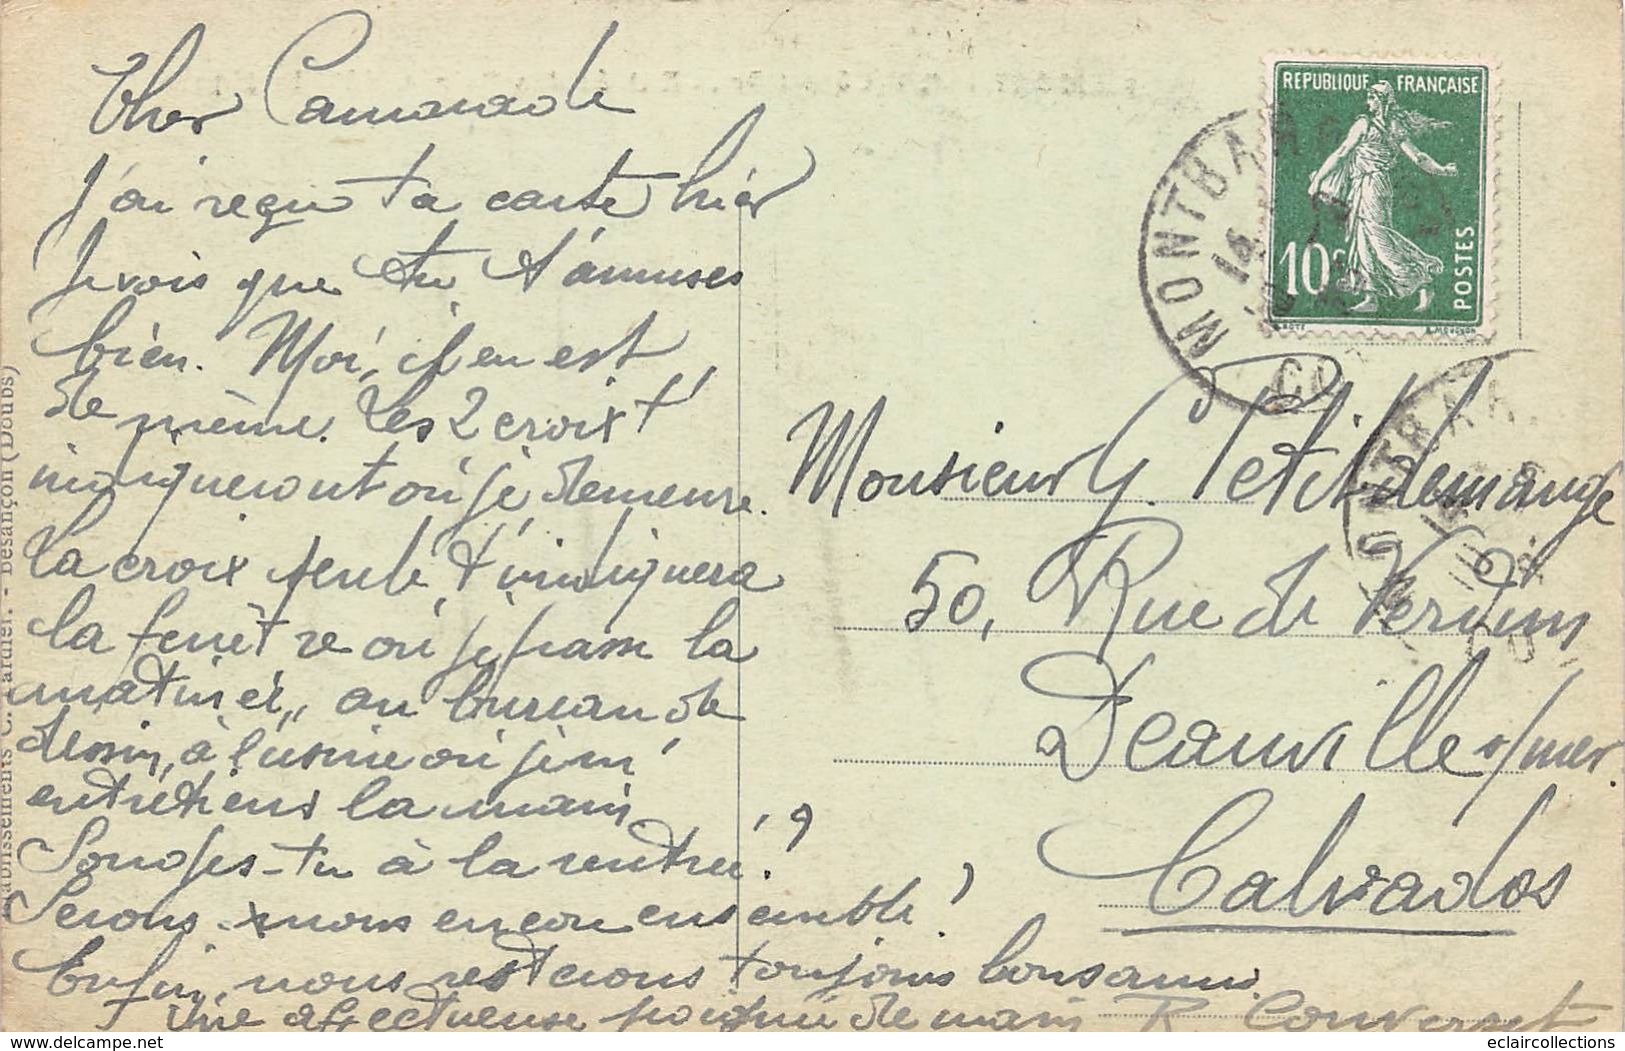 Cher Camarade
J'ai reçu ta carte hier
Je vois que tu t'amuses
bien. Moi, il en est
de même. Les 2 croix t'
indiqueront où je demeure.
La croix seule t'indiquera
la fenêtre où je passe la
matinée, au bureau de
dessin, à l'usine où je m'
entretiens la main
Songes-tu à la rentrée ?
Serons-nous encore ensemble ?
Enfin, nous resterons toujours bons amis.
Une affectueuse poignée de main R. Converset
Etablissements C. Lardier. - Besançon (Doubs)
REPUBLIQUE FRANÇAISE
10c
POSTES
MONTBARD
14
COT
Monsieur G. Petitdemange
50, Rue de Verdun
Deauville s/mer.
Calvados
MONTBARD
14
www.delcampe.net
eclaircollections